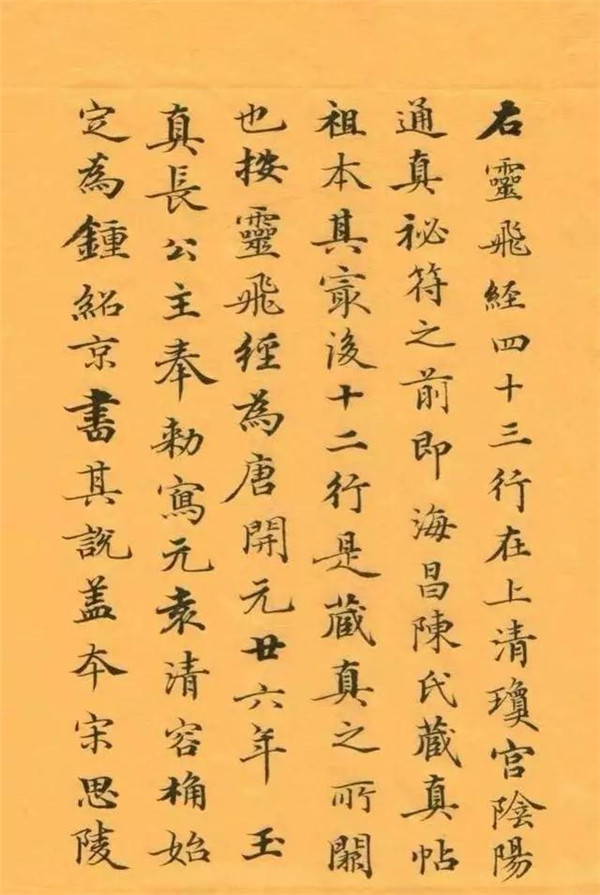 右靈飛經四十三行在上清瓊宮陰陽
通真祕符之前即海昌陳氏藏真帖
祖本其㝡後十二行是藏真之所闕
也按靈飛經為唐開元廿六年玉
真長公主奉勅寫元袁清容桷始
定為鍾紹京書其說蓋本宋思陵